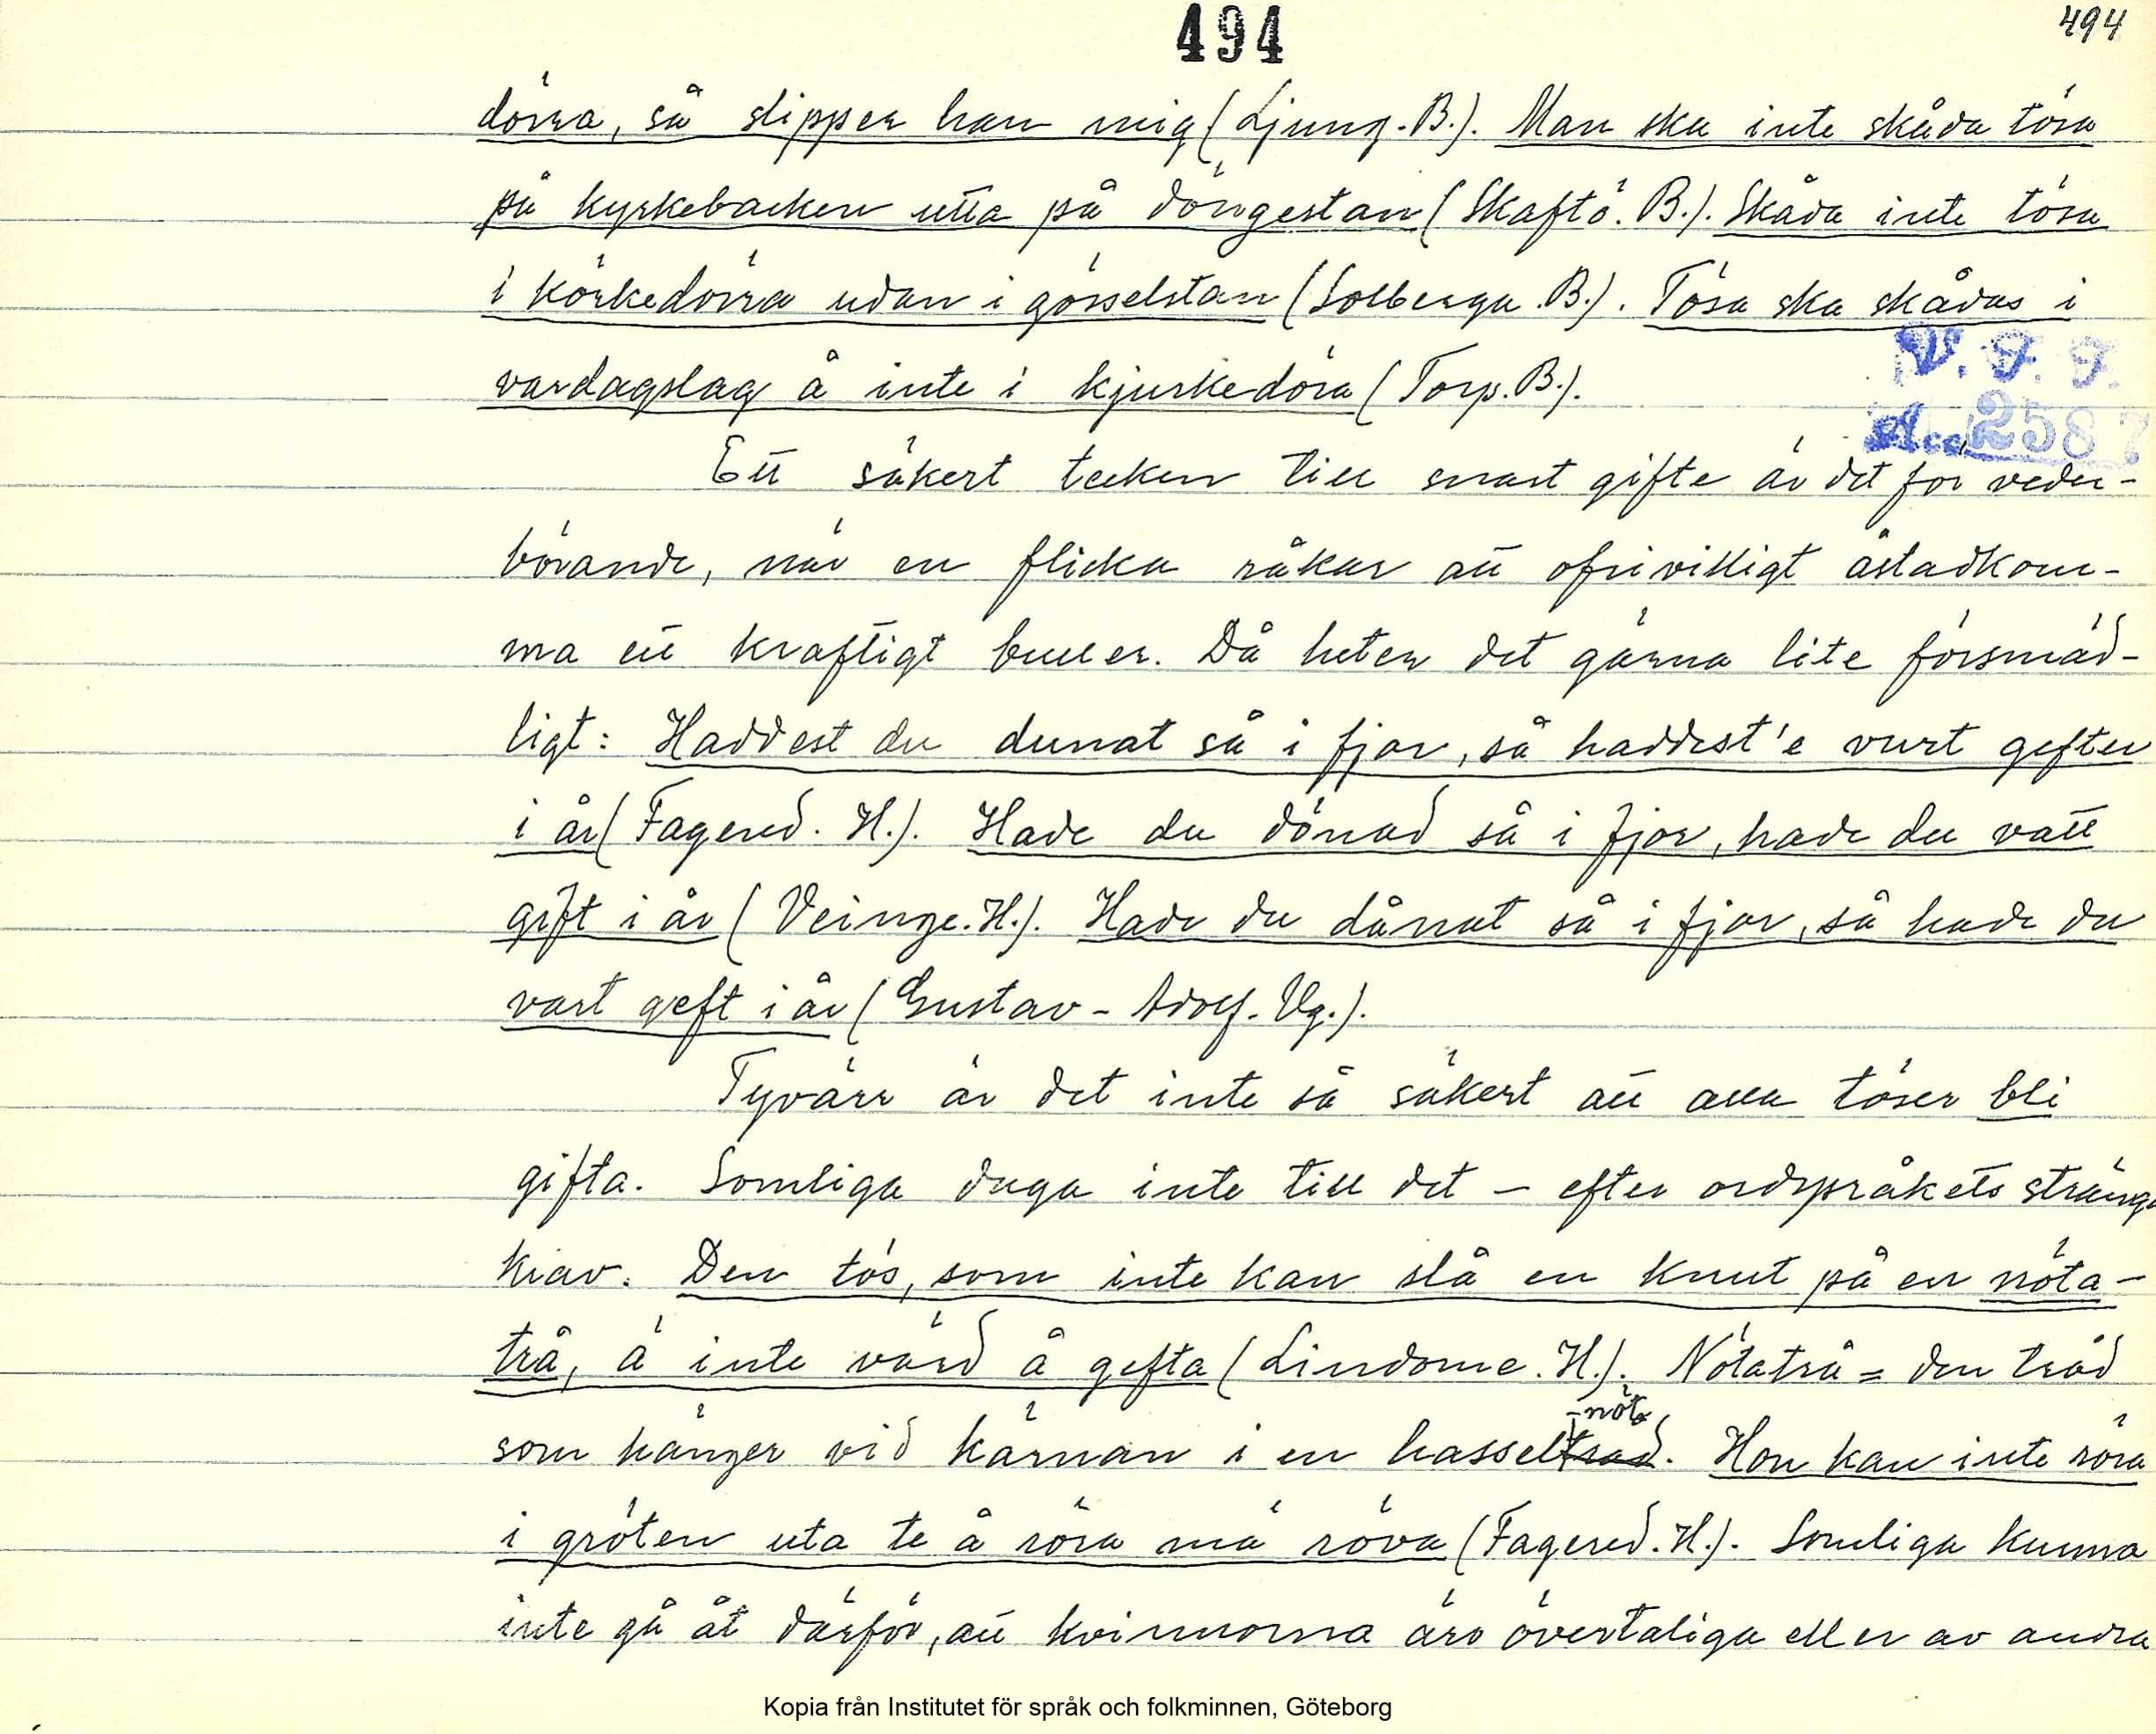 494
494
dörra, så slipper han mig (Ljung. B.). Man ska inte skåda tösa
på kyrkebacken utta på döngestan (Skaftö. B.). Skåda inte tösa
i körkedörra udan i gösselstan (Solberga. B.). Tösa ska skådas i
vardagslag å inte i kjurkedöra (Torp. B.).
V. F. F.
Acc. 2587
Ett säkert tecken till snart gifte är det för veder-
börande, när en flicka råkar att ofrivilligt åstadkom-
ma ett kraftigt buller. Då heter det gärna lite försmäd-
ligt: Haddest du dunat så i fjor, så haddest'e vurt gefter
i år (Fagered. H.). Hade du dönad så i fjor, hade du vatt
gift i år (Veinge. H.). Hade du dånat så i fjor, så hade du
vart geft i år (Gustav-Adolf. Vg.).
Tyvärr är det inte så säkert att alla töser bli
gifta. Somliga duga inte till det – efter ordspråkets stränga
krav. Den tös, som inte kan slå en knut på en nöta-
trå, ä inte värd å gefta (Lindome. H.). Nötatrå = den tråd
som hänger vid kärnan i en hassel-nöt. Hon kan inte röra
i gröten uta te å röra mä röva (Fagered. H.). Somliga kunna
inte gå åt därför, att kvinnorna äro övertaliga eller av andra
Kopia från Institutet för språk och folkminnen, Göteborg